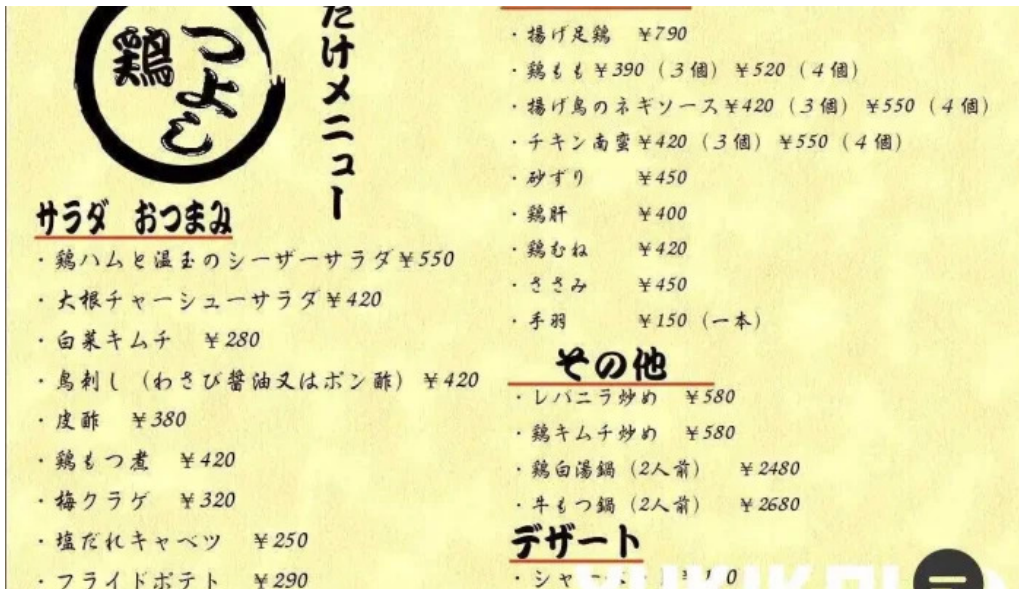 鶏
つよし
だけメニュー
サラダ おつまみ
・鶏ハムと温玉のシーザーサラダ¥550
・大根チャーシューサラダ¥420
・白菜キムチ ¥280
・鳥刺し（わさび醤油又はポン酢）¥420
・皮酢 ¥380
・鶏もつ煮 ¥420
・梅クラゲ ¥320
・塩だれキャベツ ¥250
・フライドポテト ¥290
・揚げ足鶏 ¥790
・鶏もも¥390（3個）¥520（4個）
・揚げ鳥のネギソース¥420（3個）¥550（4個）
・チキン南蛮¥420（3個）¥550（4個）
・砂ずり ¥450
・鶏肝 ¥400
・鶏むね ¥420
・ささみ ¥450
・手羽 ¥150（一本）
その他
・レバニラ炒め ¥580
・鶏キムチ炒め ¥580
・鶏白湯鍋（2人前） ¥2480
・牛もつ鍋（2人前） ¥2680
デザート